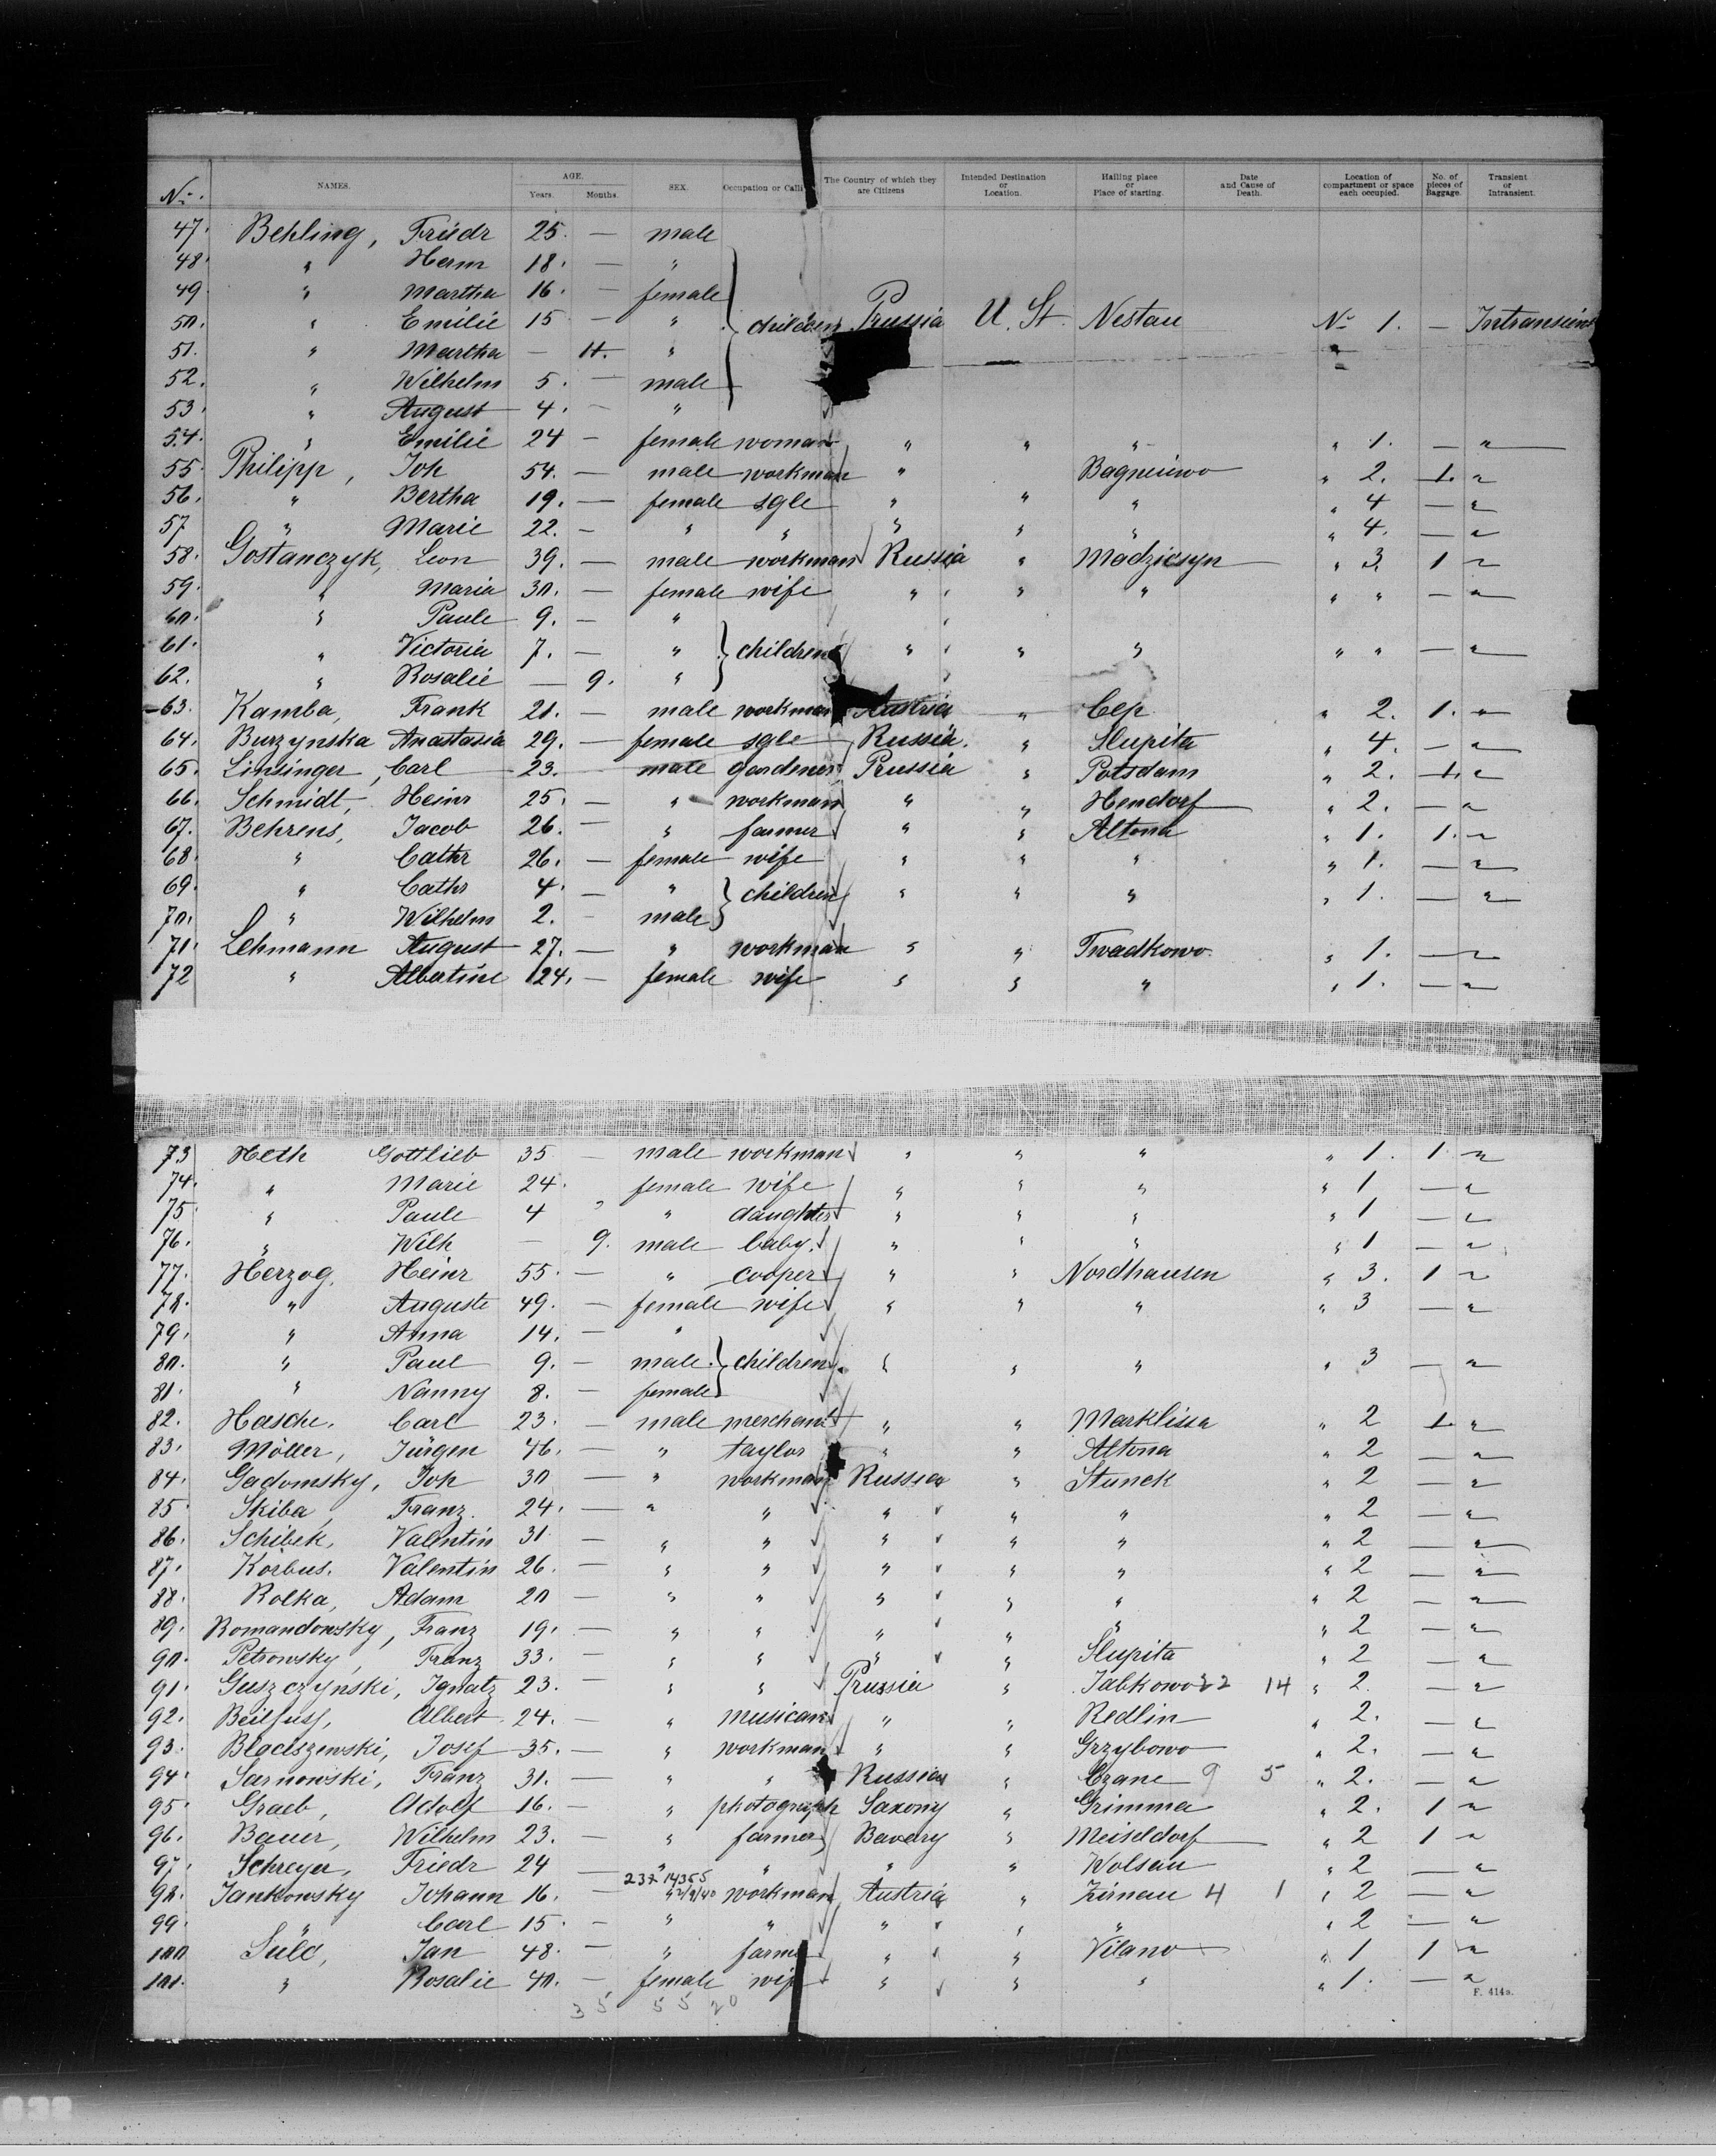 No. NAMES. AGE. Years. Months. SEX. Occupation or Calli The Country of which they are Citizens Intended Destination or Location. Hailing place or Place of starting. Date and Cause of Death. Location of compartment or space each occupied. No. of pieces of Baggage. Transient or Intransient.
47. Behling, Friedr 25. — male
48. " Herm 18. — "
49. " Martha 16. — female
50. " Emilie 15 — " children Prussia U. St. Nestau No 1. — Intransient
51. " Martha — 11. "
52. " Wilhelm 5. — male
53. " August 4. — "
54. " Emilie 24 — female woman " " " " 1. — "
55. Philipp, Joh 54. — male workman " Bagneiuwo " 2. 1. "
56. " Bertha 19. — female sgle " " " " 4 — "
57 " Marie 22. — " " " " " " 4. — "
58. Gostanczyk, Leon 39. — male workman Russia " Modzicsyn " 3. 1 "
59. " Maria 30. — female wife " " " " " — "
60. " Paule 9. — "
61. " Victoria 7. — " children " " " " " — "
62. " Rosalie — 9. "
63. Kamba, Frank 21. — male workman Austria " Cep " 2. 1. "
64. Burzynska Anastasia 29. — female sgle Russia. " Slupita " 4. — "
65. Linsinger, Carl 23. male gardener Prussia " Potsdam " 2. 1. "
66. Schmidt, Heinr 25. — " workman " " Hendorf " 2. — "
67. Behrens, Jacob 26. — " farmer " " Altona " 1. 1. "
68. " Cathr 26. — female wife " " " " 1. — "
69. " Cathr 4. — " children " " " " 1. — "
70. " Wilhelm 2. — male
71. Lehmann August 27. — " workman " " Twadkowo. " 1. — "
72 " Albertine 24. — female wife " " " " 1. — "
73 Heth Gottlieb 35 — male workman " " " " 1. 1 "
74. " Marie 24. female wife " " " " 1 — "
75 " Paule 4 " " daughter " " " " 1 — "
76. " Wilh — 9. male baby. " " " " 1 — "
77. Herzog, Heinr 55. — " cooper " " Nordhausen " 3. 1 "
78. " Auguste 49. — female wife " " " " 3 — "
79. " Anna 14. — "
80. " Paul 9. — male children " " " " 3 — "
81. " Nanny 8. — female
82. Hasche. Carl 23. — male merchant " " Marklissa " 2 1. "
83. Möller, Jürgen 46. — " taylor " " Altona " 2 — "
84. Gadomsky, Joh 30 — " workman Russia " Stunck " 2 — "
85 Skiba, Franz. 24. — " " " " " " 2 — "
86. Schibek, Valentin 31 — " " " " " " 2 — "
87. Korbus. Valentin 26. — " " " " " " 2 — "
88. Rolka, Adam 20 — " " " " " " 2 — "
89. Romandowsky, Franz 19. — " " " " " " 2 — "
90. Petrowsky, Franz 33. — " " " " Slupita " 2 — "
91. Guszczynski, Ignatz 23. — " " Prussia " Jabkowo 22 14 " 2. — "
92. Beilfuss, Albert 24. — " musican " " Redlin " 2. — "
93. Blaciszewski, Josef 35. — " workman " " Grzybowo " 2. — "
94. Sarnowski, Franz 31. — " " Russia " Czane 9 5 " 2. — "
95. Graeb, Adolf 16. — " photograph Saxony " Grimma " 2. 1 "
96. Bauer, Wilhelm 23. — " farmer Bavary " Meiseldorf " 2 1 "
97. Schreyer, Friedr 24 — " " " " Wolsau " 2 — "
98. Jankowsky Johann 16. — " workman Austria " Zirnau 4 1 " 2 — "
99. " Carl 15. — " " " " " " 2 — "
100 Sulc, Jan 48. — " farme " " Vilano " 1 1 "
101. " Rosalie 40. — female wife " " " " 1. — "
35 55 20
F. 414a.